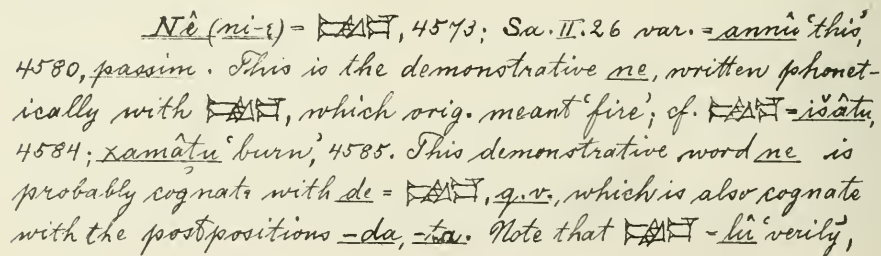 Nê (ni-ҽ) = 𒉈, 4573; Sa. II. 26 var. = annû 'this,'
4580, passim. This is the demonstrative ne, written phonet-
ically with 𒉈, which orig. meant 'fire'; cf. 𒉈 = išâtu,
4584; xamâṭu 'burn,' 4585. This demonstrative word ne is
probably cognate with de = 𒉈, q.v., which is also cognate
with the postpositions -da, -ta. Note that 𒉈 - lû 'verily,'